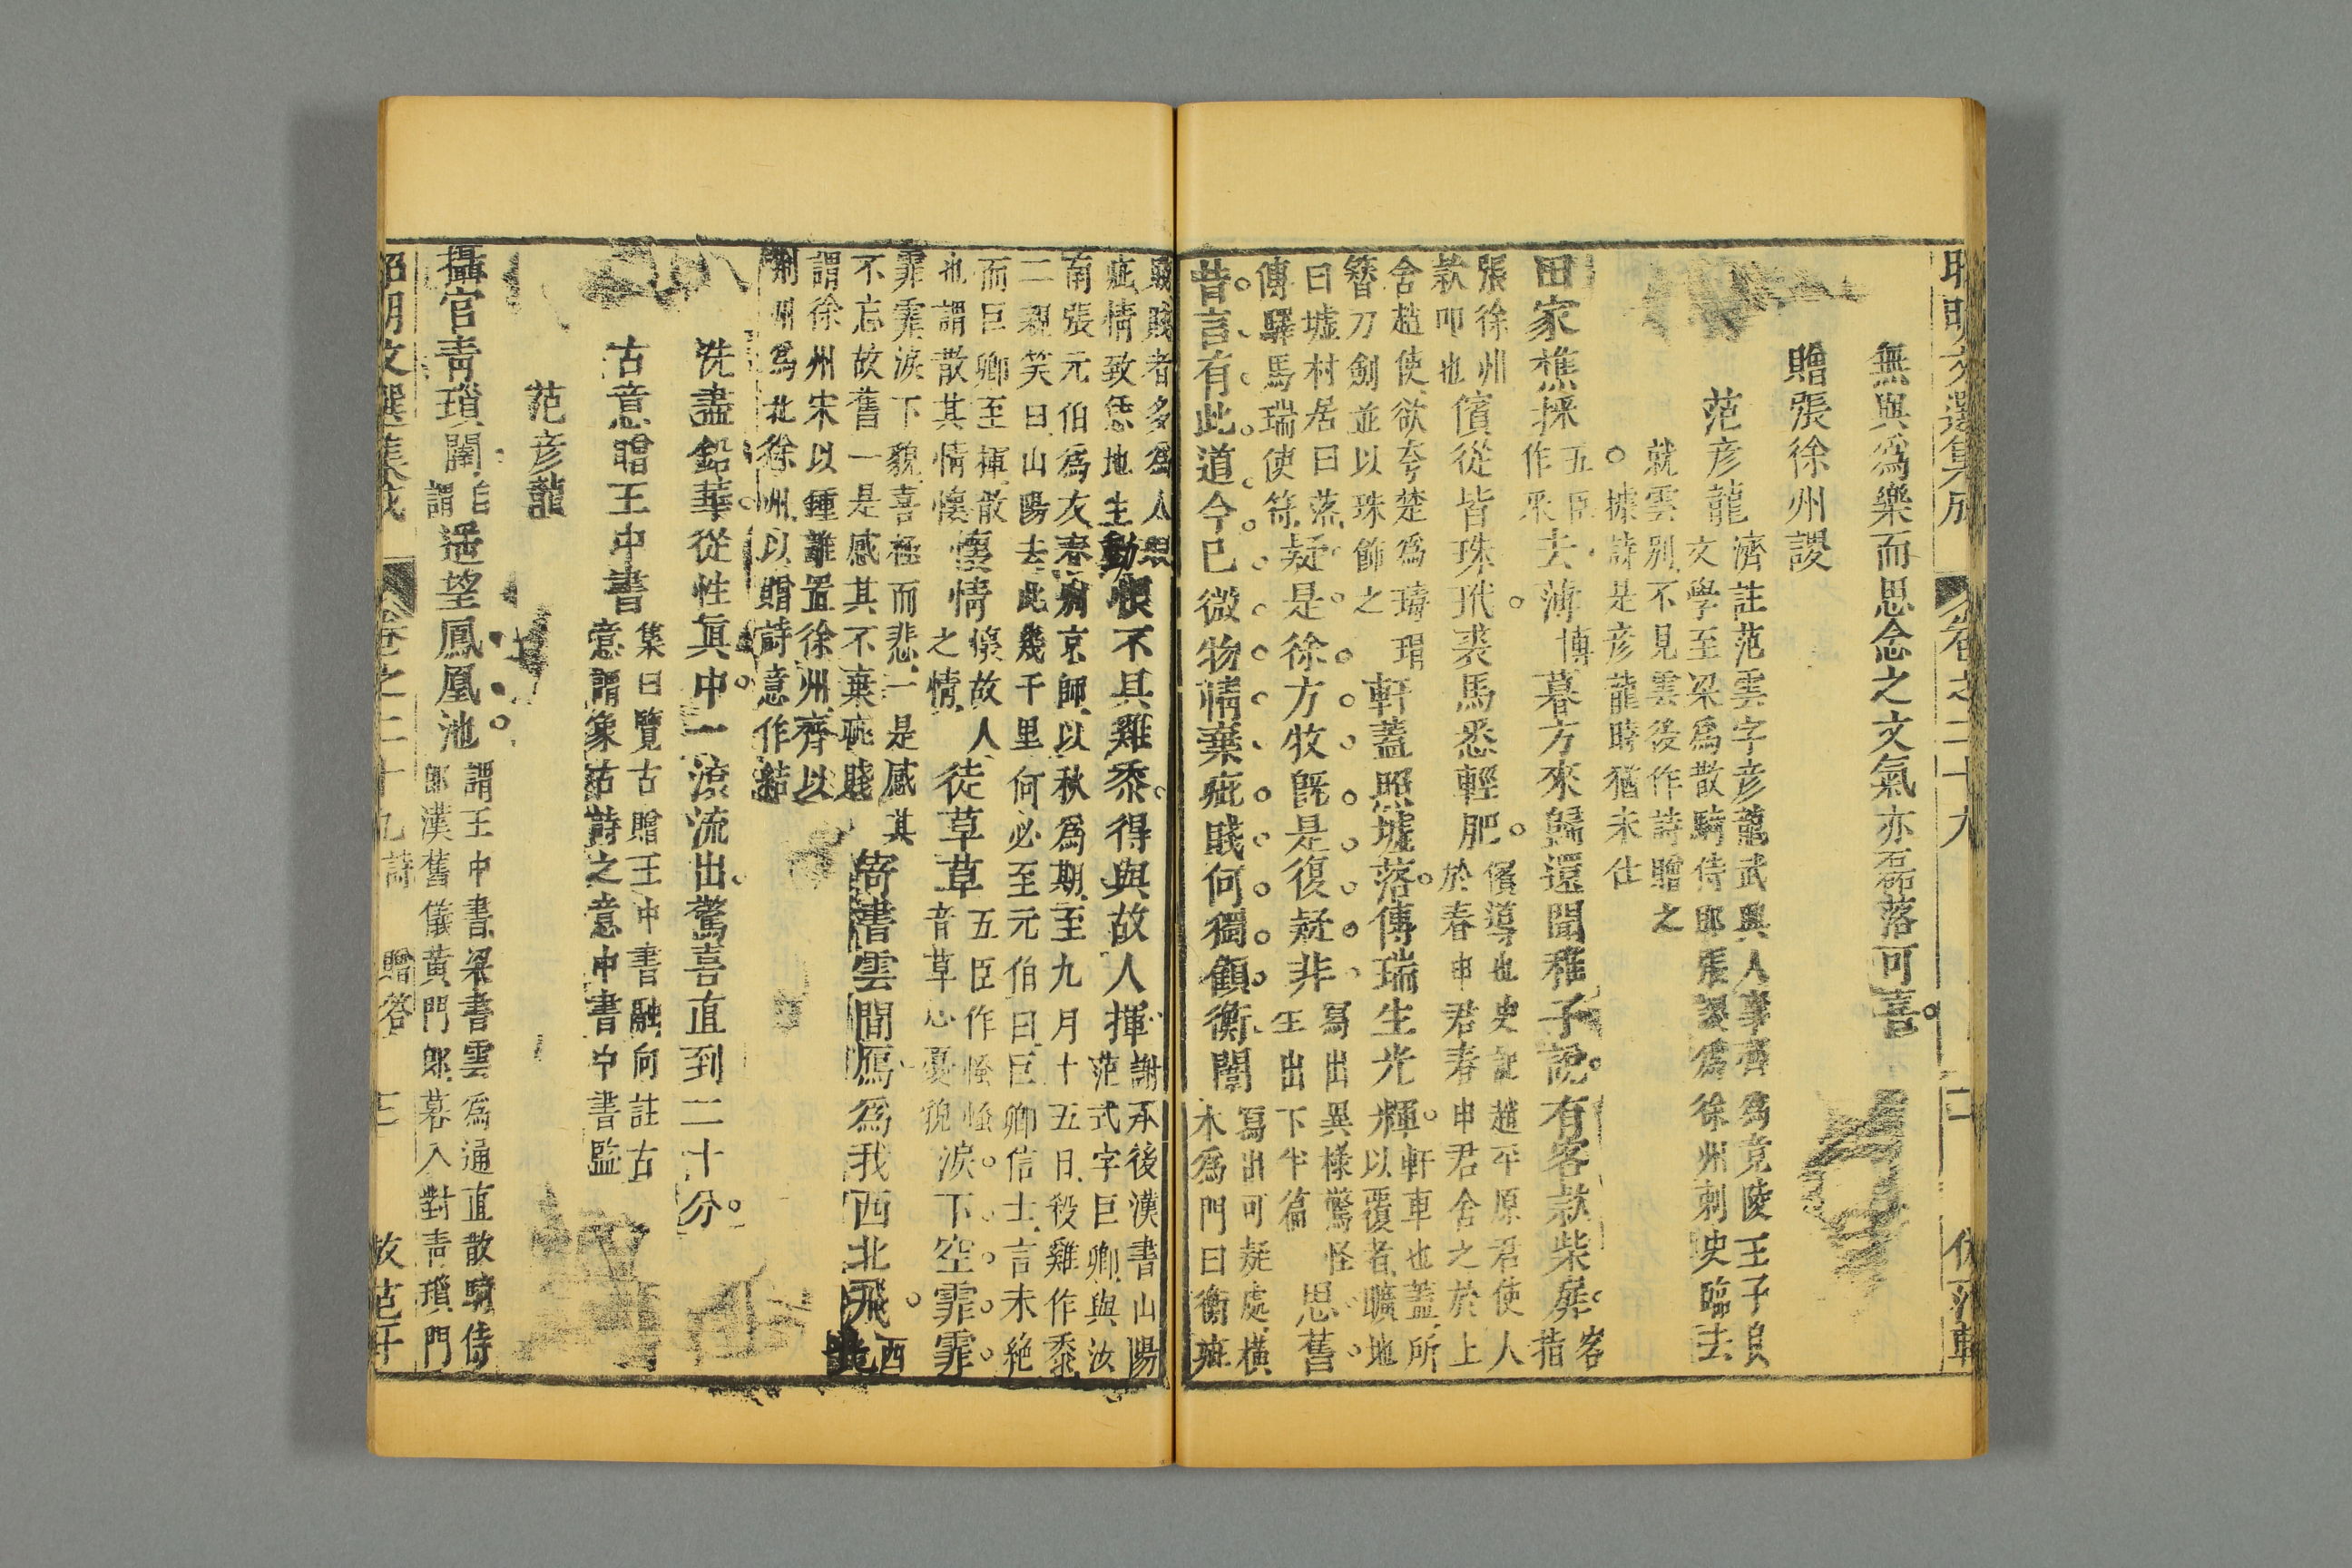 昭明文選集成 卷之二十九 二
無與爲樂而思念之文氣亦磊落可喜
贈張徐州謖
范彥龍
濟註范雲字彥龍武興人事齊爲竟陵王子良
文學至梁爲散騎侍郎張謖爲徐州刺史臨去
就雲别不見雲後作詩贈之
據詩是彥龍時猶未仕
田家樵採
五臣
作采
去薄
博
暮方來歸還聞稚子說有客款柴扉
客
指
張徐州
款叩也
儐從皆珠玳裘馬悉輕肥
儐導也史記趙平原君使人
於春申君春申君舍之於上
舍趙使欲夸楚爲瑇瑁
簪刀劍並以珠飾之
軒蓋照墟落傳瑞生光輝
軒車也蓋所
以覆者曠地
曰墟村居曰落
傳驛馬瑞使符
疑是徐方牧旣是復疑非
寫出異樣驚怪
生出下半篇
思舊
昔言有此道今已微物情棄疵賤何獨顧衡闈
寫出可疑處橫
木爲門曰衡疵
賤賤者多爲人思
疵情致恁地生動
恨不具雞黍得與故人揮
謝承後漢書山陽
范式字巨卿與汝
南張元伯爲友春别京師以秋爲期至九月十五日殺雞作黍
二親笑曰山陽去此幾千里何必至元伯曰巨卿信士言未絶
而巨卿至揮散
也謂散其情懷
懷情
懷故人
之情
徒草草
五臣作慅慅
音草心憂貌
淚下空霏霏
霏霏淚下貌喜極而悲一是感其
不忘故舊一是感其不棄疵賤
寄書雲間鴈爲我西北飛
西
北
謂徐州宋以鍾離置徐州齊以
荆州爲北徐州以贈詩意作結
洗盡鉛華從性眞中一滾流出驚喜直到二十分
古意贈王中書
集曰覽古贈王中書融向註古
意謂象古詩之意中書中書監
范彥龍
攝官靑瑣闥
自
謂
遥望鳳凰池
謂王中書梁書雲爲通直散騎侍
郎漢舊儀黃門郎暮入對靑瑣門
昭明文選集成 卷之二十九 詩 贈答 三